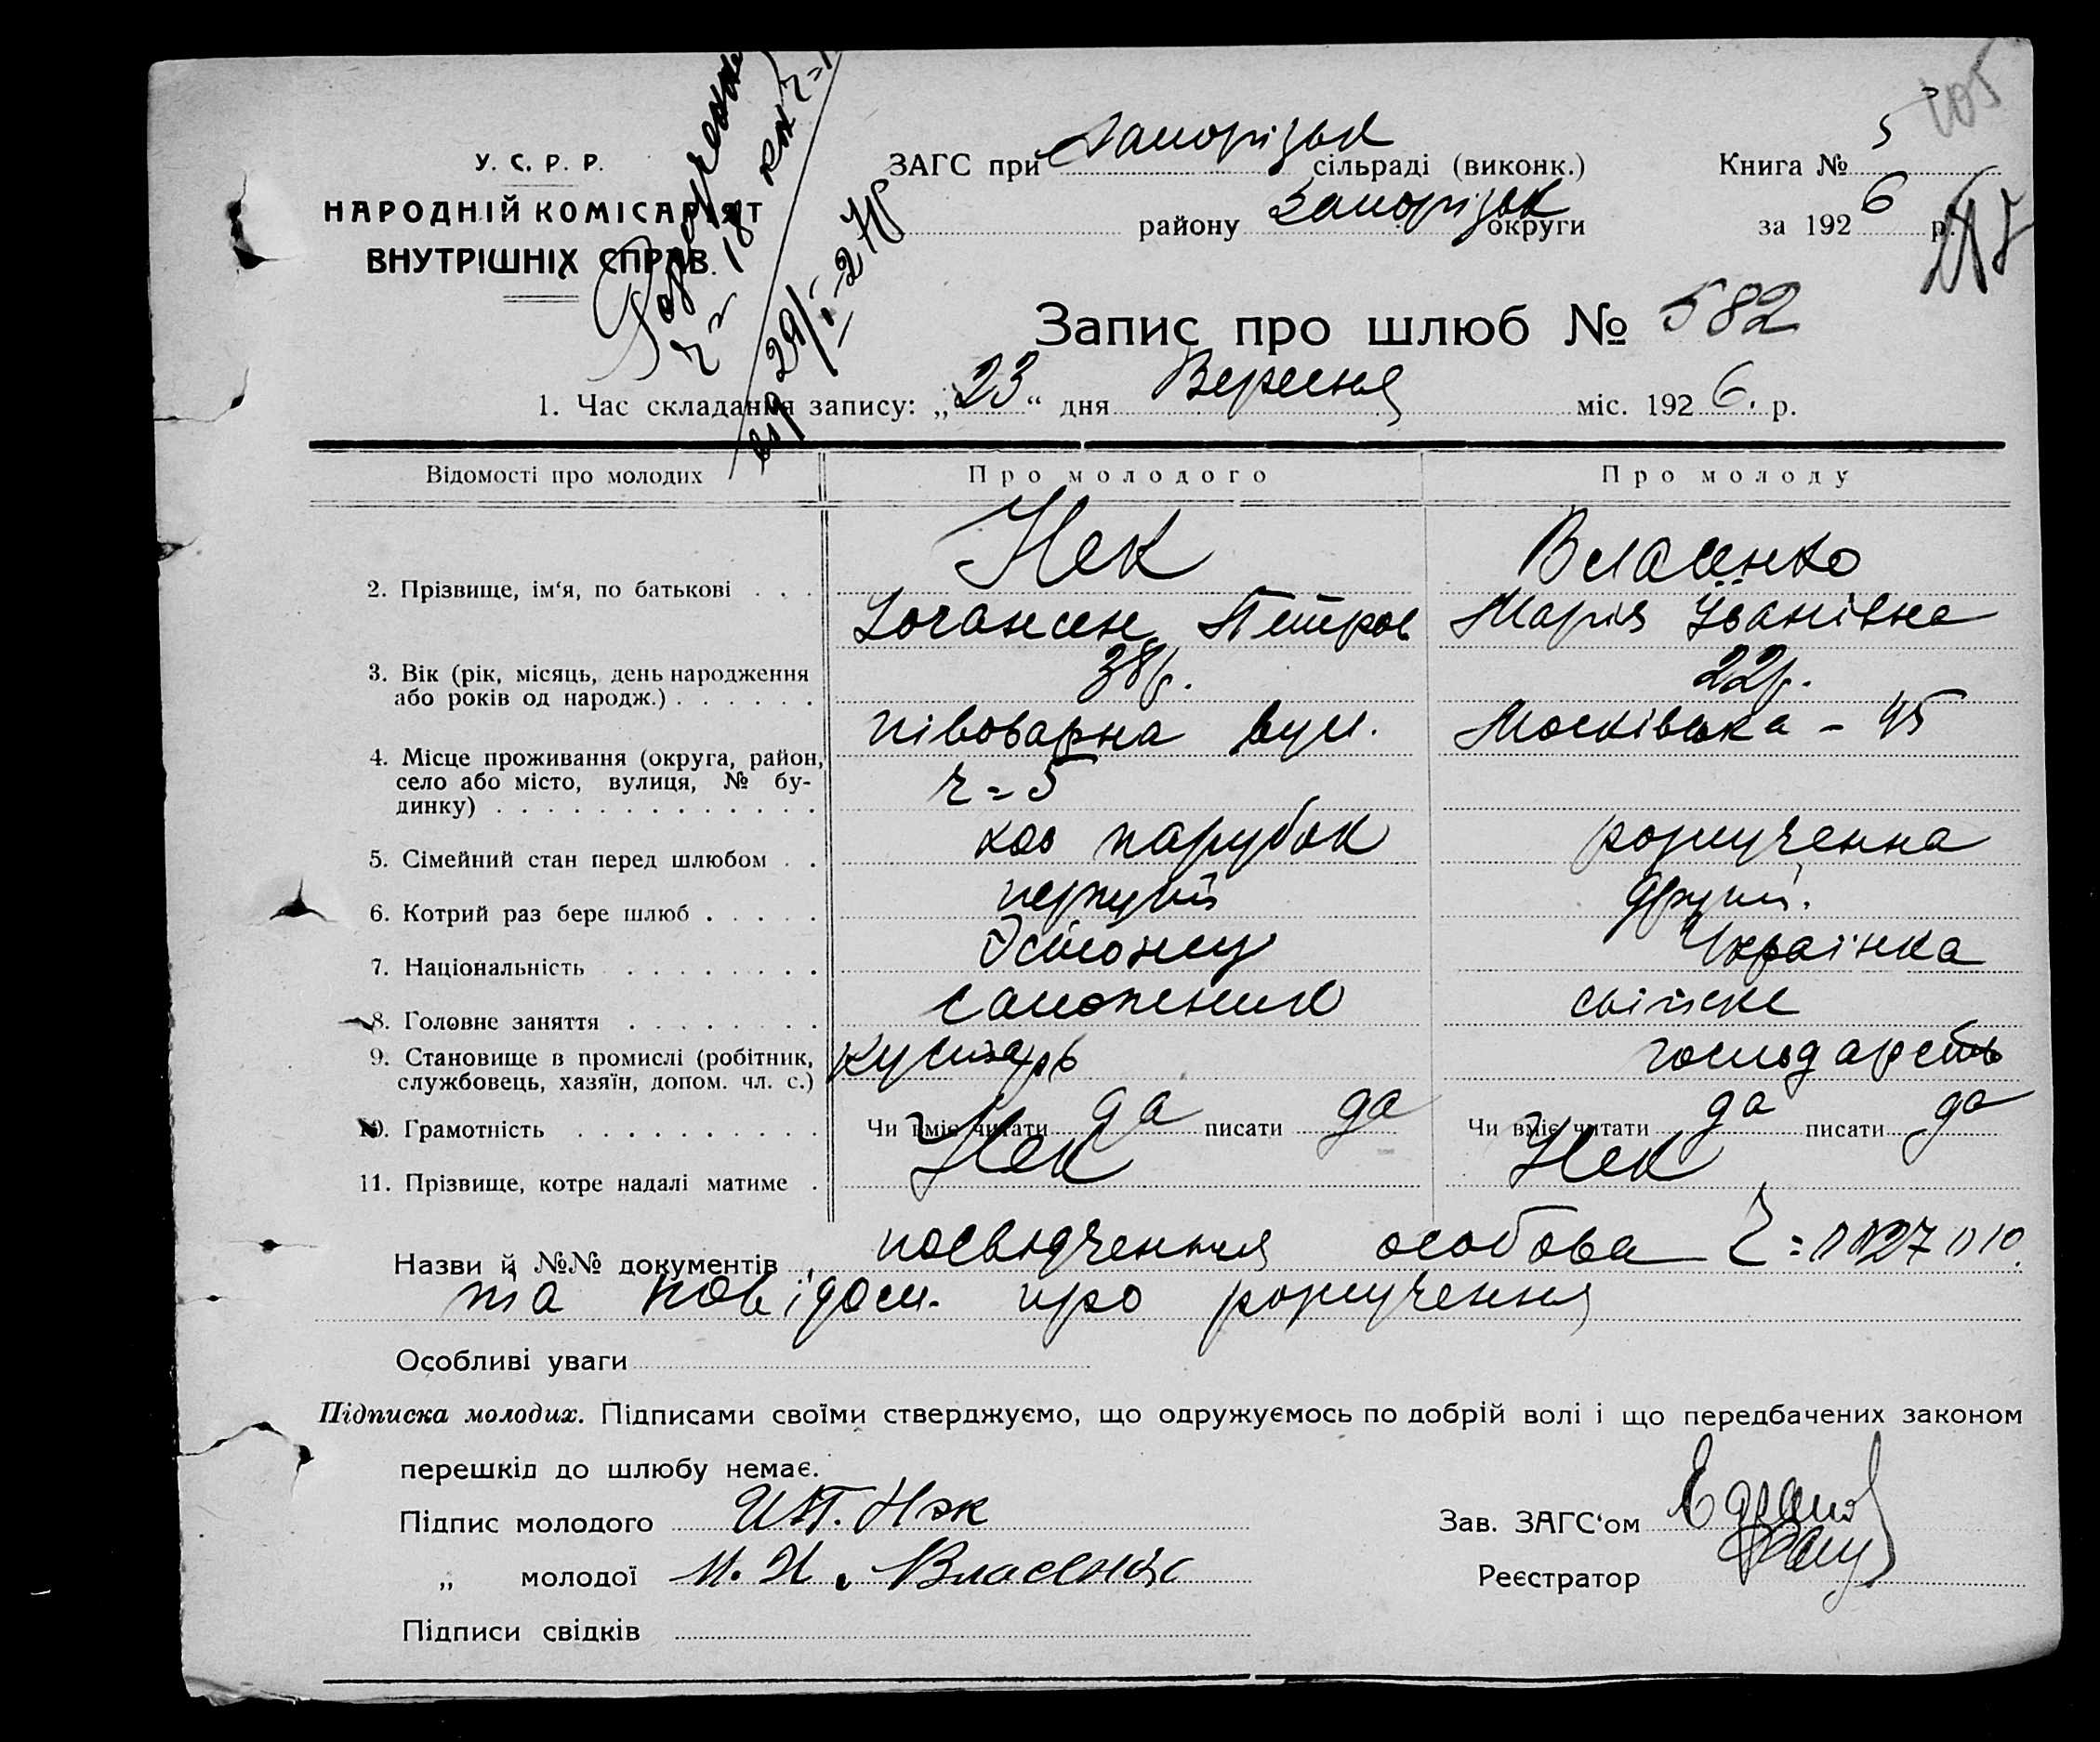 105
У. С. Р. Р.
НАРОДНІЙ КОМІСАРІЯТ
ВНУТРІШНІХ СПРАВ.
ЗАГС при Запорізьк сільраді (виконк.)
Книга № 5
району Запорізьк округи
за 1926 р.
Запис про шлюб № 582
1. Час складання запису: „23“ дня Вересня міс. 1926. р.
Відомості про молодих Про молодого Про молоду
2. Прізвище, ім‘я, по батькові . . . Нек Власенко
Петров Марія Іванівна
3. Вік (рік, місяць, день народження 38р. 22р.
або років од народж.) . . . . . .
4. Місце проживання (округа, район, півоварна вул. Московська - 45
село або місто, вулиця, № бу- ч = 5
динку) . . . . . . . . . . . . .
5. Сімейний стан перед шлюбом . . парубок розлученна
6. Котрий раз бере шлюб . . . . . перший другий.
7. Національність . . . . . . . . Эстонец Українка
8. Головне заняття . . . . . . . . сапожник свійске
9. Становище в промислі (робітник, кустарь господарств
службовець, хазяїн, допом. чл. с.)
10. Грамотність . . . . . . . . . . Чи вміє читати да писати да Чи вміє читати да писати да
11. Прізвище, котре надалі матиме . Нек Нек
Назви й №№ документів посвидчення особова
та повідом. про розлучення
Особливі уваги
Підписка молодих. Підписами своїми стверджуємо, що одружуємось по добрій волі і що передбачених законом
перешкід до шлюбу немає.
Підпис молодого И.П. Нэк
Зав. ЗАГС‘ом
„ молодої М. И. Власенко
Реєстратор
Підписи свідків